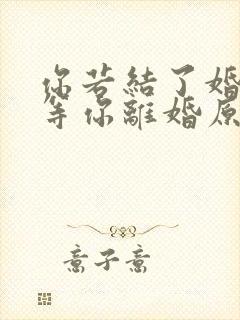 你若結了婚
等你離婚原
意子意